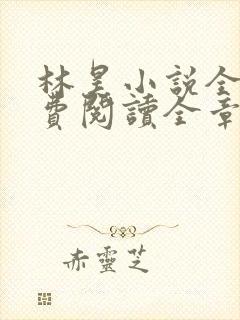 林昊小説全
費閱讀全章
赤靈芝